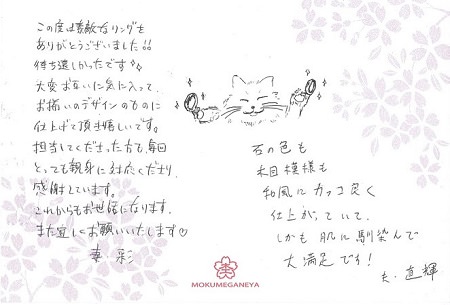 この度は素敵なリングを
ありがとうございました!!
待ち遠しかったです
大変お互いに気に入って、
お揃いのデザインのものに
仕上げて頂き嬉しいです。
担当してくださった方も毎回
とっても親身に対応くださり、
感謝しています。
これからもお世話になります。
また宜しくお願いいたします♡
妻・彩
石の色も
木目模様も
和風にカッコ良く
仕上がっていて、
しかも肌に馴染んで
大満足です!
夫・直輝
MOKUMEGANEYA